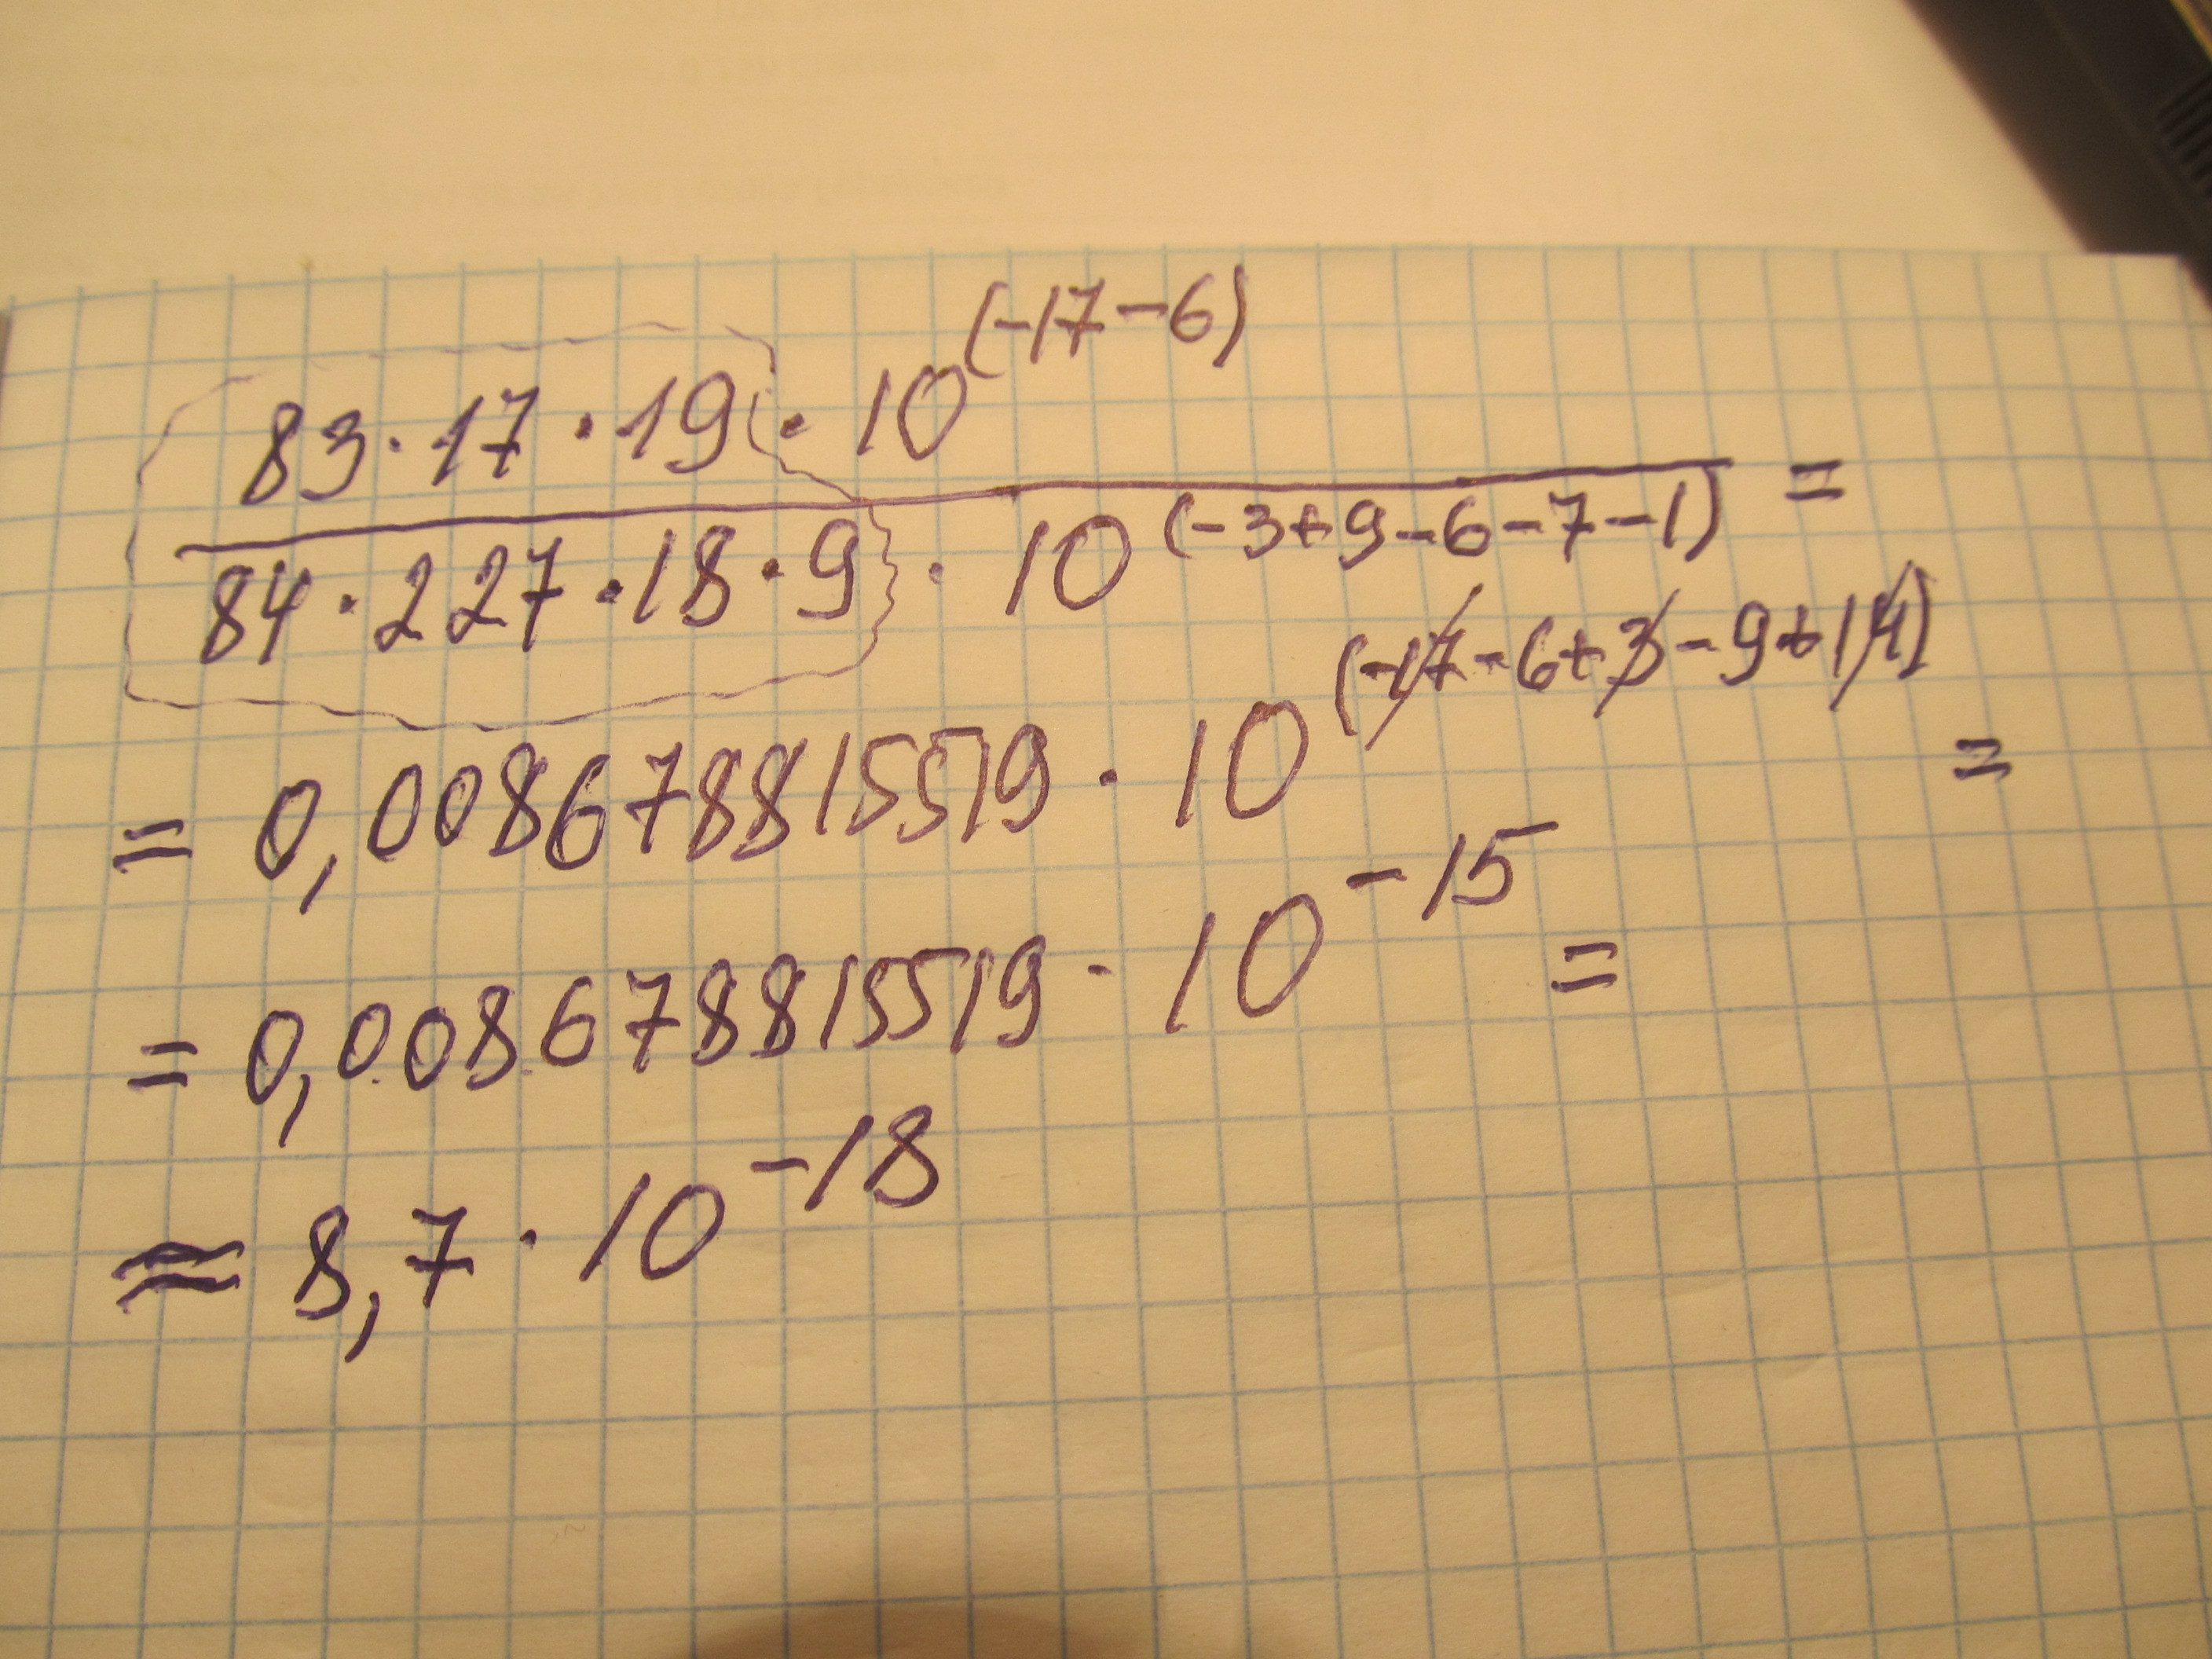 83·17·19·10^(-17-6)
84·227·18·9·10^(-3+9-6-7-1) =
= 0,0086788815519·10^(-17-6+3-9+14) =
= 0,0086788815519·10^-15 =
≈ 8,7·10^-18